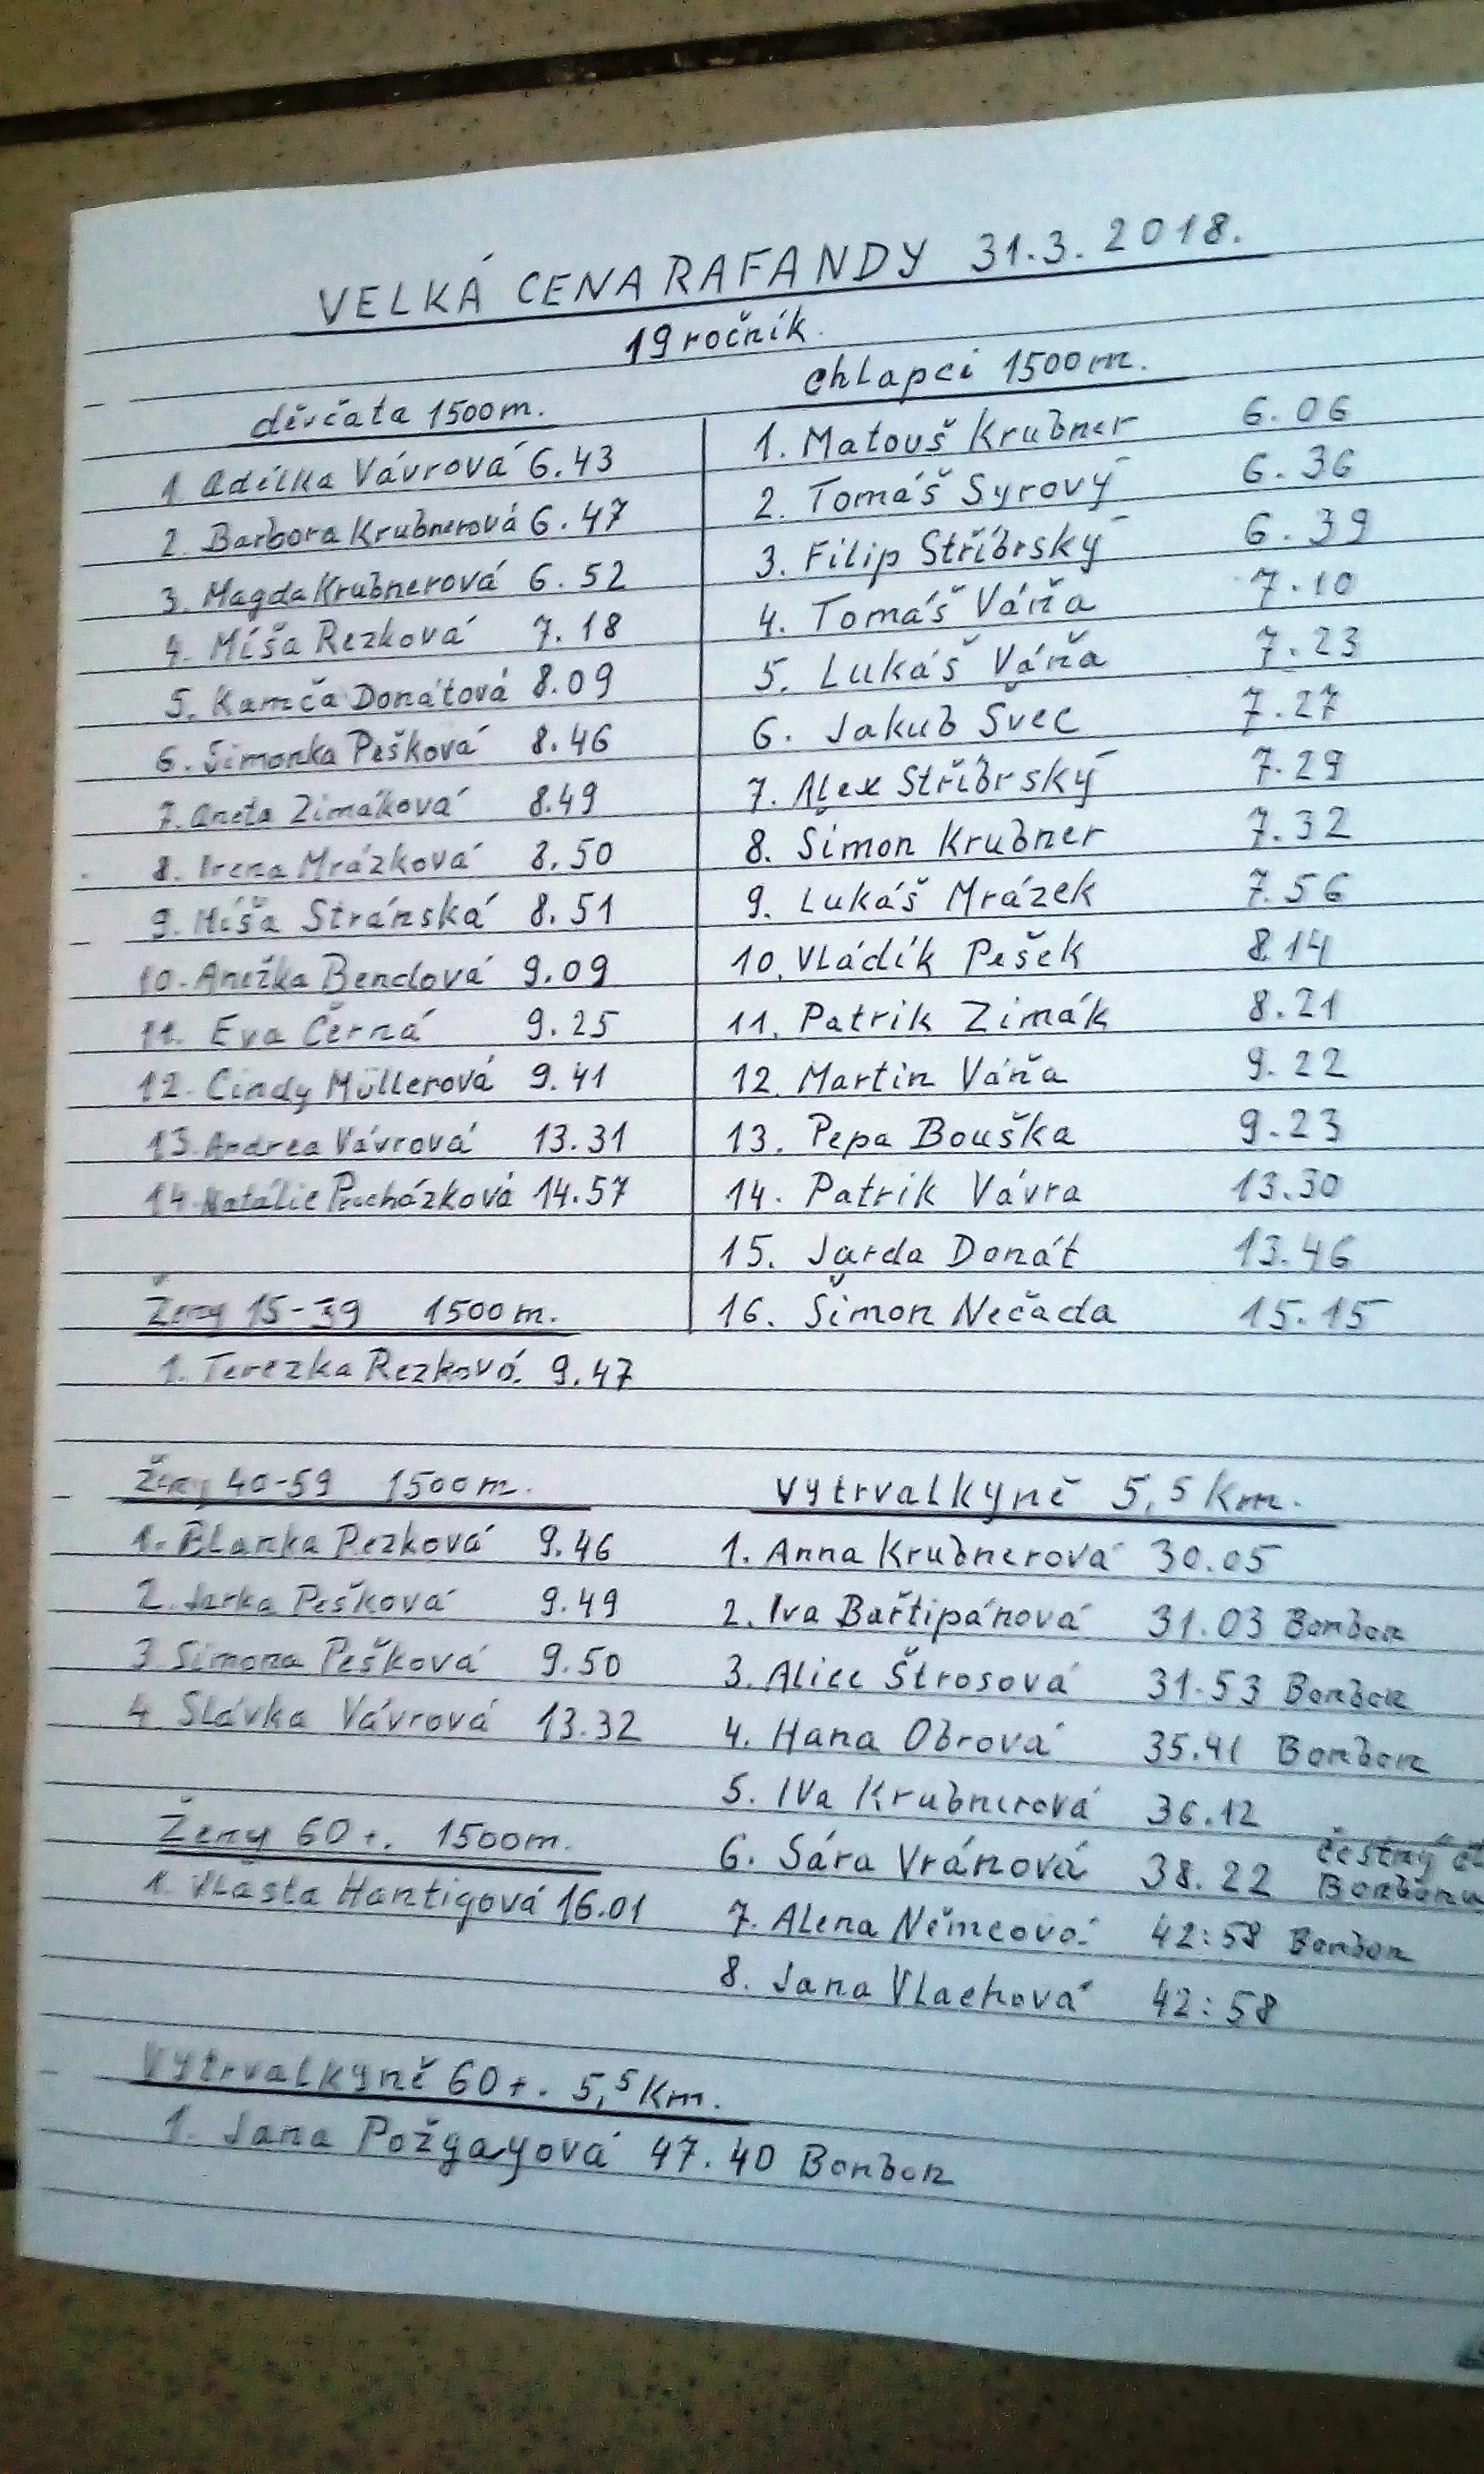 VELKÁ CENA RAFANDY 31.3. 2018.
19 ročník.
děvčata 1500m.
1 Adélka Vávrová 6.43
2. Barbora Krubnerová 6.47
3. Magda Krubnerová 6.52
4. Míša Rezková 7.18
5. Kamča Donátová 8.09
6. Simonka Pešková 8.46
7. Aneta Zimáková 8.49
8. Irena Mrázková 8.50
9. Míša Stránská 8.51
10. Anežka Bendová 9.09
11. Eva Černá 9.25
12. Cindy Müllerová 9.41
13. Andrea Vávrová 13.31
14. Natálie Procházková 14.57
chlapci 1500m.
1. Matouš Krubner 6.06
2. Tomáš Syrový 6.36
3. Filip Stříbrský 6.39
4. Tomáš Váňa 7.10
5. Lukáš Váňa 7.23
6. Jakub Švec 7.27
7. Alex Stříbrský 7.29
8. Šimon Krubner 7.32
9. Lukáš Mrázek 7.56
10. Vládík Pešek 8.14
11. Patrik Zimák 8.21
12. Martin Váňa 9.22
13. Pepa Bouška 9.23
14. Patrik Vávra 13.30
15. Jarda Donát 13.46
16. Šimon Nečada 15.15
Ženy 15-39 1500m.
1. Terezka Rezková. 9.47
Ženy 40-59 1500m.
1. Blanka Rezková 9.46
2. Jarka Pešková 9.49
3 Simona Pešková 9.50
4 Slávka Vávrová 13.32
Ženy 60+. 1500m.
1. Vlasta Hantigová 16.01
Vytrvalkyně 5,5 Km.
1. Anna Krubnerová 30.05
2. Iva Bařtipánová 31.03 Bonbon
3. Alice Štrosová 31.53 Bonbon
4. Hana Obrová 35.41 Bonbon
5. Iva Krubnerová 36.12
6. Sára Vránová 38.22 čestný čl
Bonbonu
7. Alena Němcová 42:58 Bonbon
8. Jana Vlachová 42:58
Vytrvalkyně 60+. 5,5 Km.
1. Jana Požgayová 47.40 Bonbon